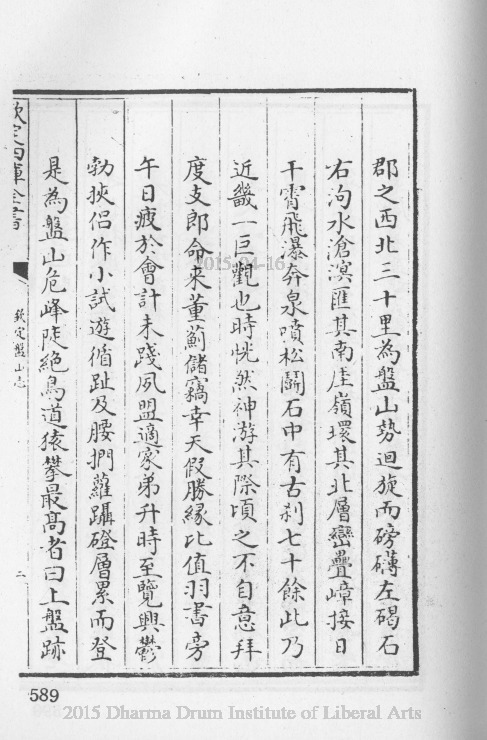 郡之西北三十里為盤山勢迴旋而磅礴左碣石
右泃水滄溟匯其南厓嶺環其北層巒疊嶂接日
干霄飛瀑奔泉噴松鬭石中有古刹七十餘此乃
近畿一巨觀也時恍然神游其際頃之不自意拜
度支郎命來董薊儲竊幸天假勝緣比值羽書旁
午日疲於會計未踐夙盟適家弟升時至覽興鬱
勃挾侣作小試遊循趾及腰捫蘿躡磴層累而登
是為盤山危峰陡絶鳥道猿攀最髙者曰上盤跡
欽定四庫全書
欽定盤山志
二
2015-04-16
589
2015 Dharma Drum Institute of Liberal Arts